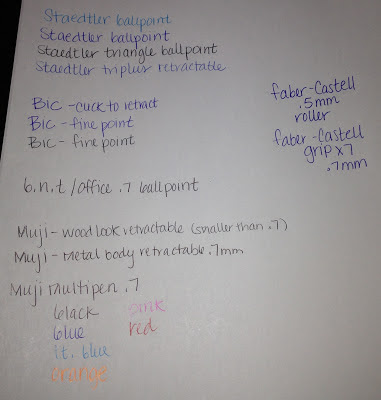 Staedtler ballpoint
Staedtler ballpoint
Staedtler triangle ballpoint
Staedtler triplus retractable
Bic - click to retract
Bic - fine point
Bic - fine point
faber-Castell
.5mm
roller
faber-Castell
grip x7
.7mm
b.n.t/office .7 ballpoint
Muji - wood look retractable (smaller than .7)
Muji - Metal body retractable .7mm
Muji Multipen .7
black
pink
blue
red
lt. blue
orange